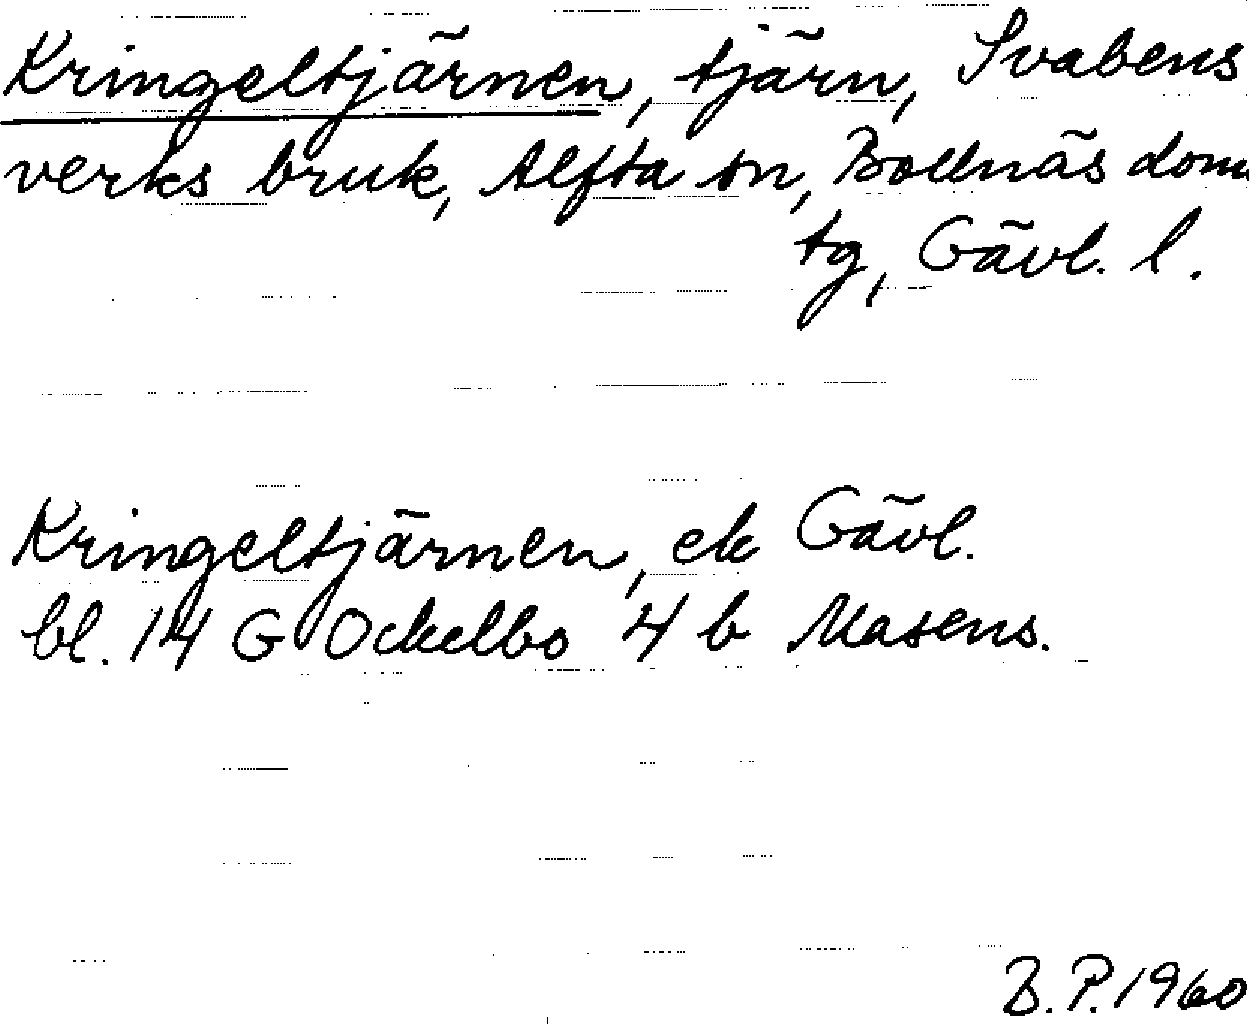 Kringeltjärnen, tjärn, Svabens
verks bruk, Alfta sn, Bollnäs doms
tg, Gävl. l.
Kringeltjärnen, ek Gävl.
bl. 14 G Ockelbo 4 b Masens.
B.P. 1960